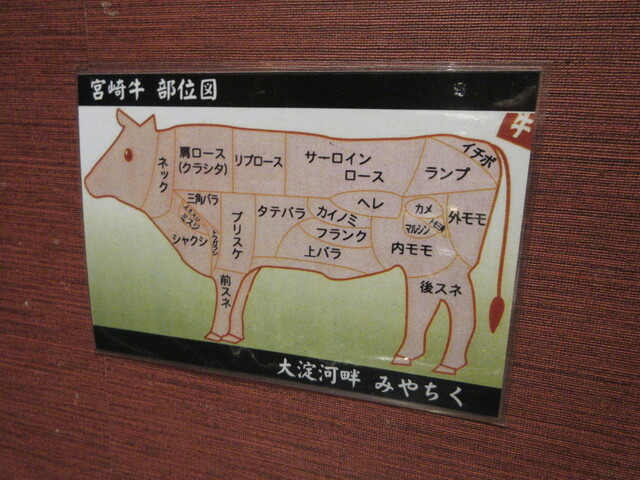 宮崎牛 部位図
牛
ネック
肩ロース
(クラシタ)
リブロース
サーロイン
ロース
ランプ
イチボ
三角バラ
ミスジ
シャクシ
ブリスケ
タテバラ
カイノミ
フランク
上バラ
ヘレ
カメ
マルシン
外モモ
内モモ
前スネ
後スネ
大淀河畔 みやちく